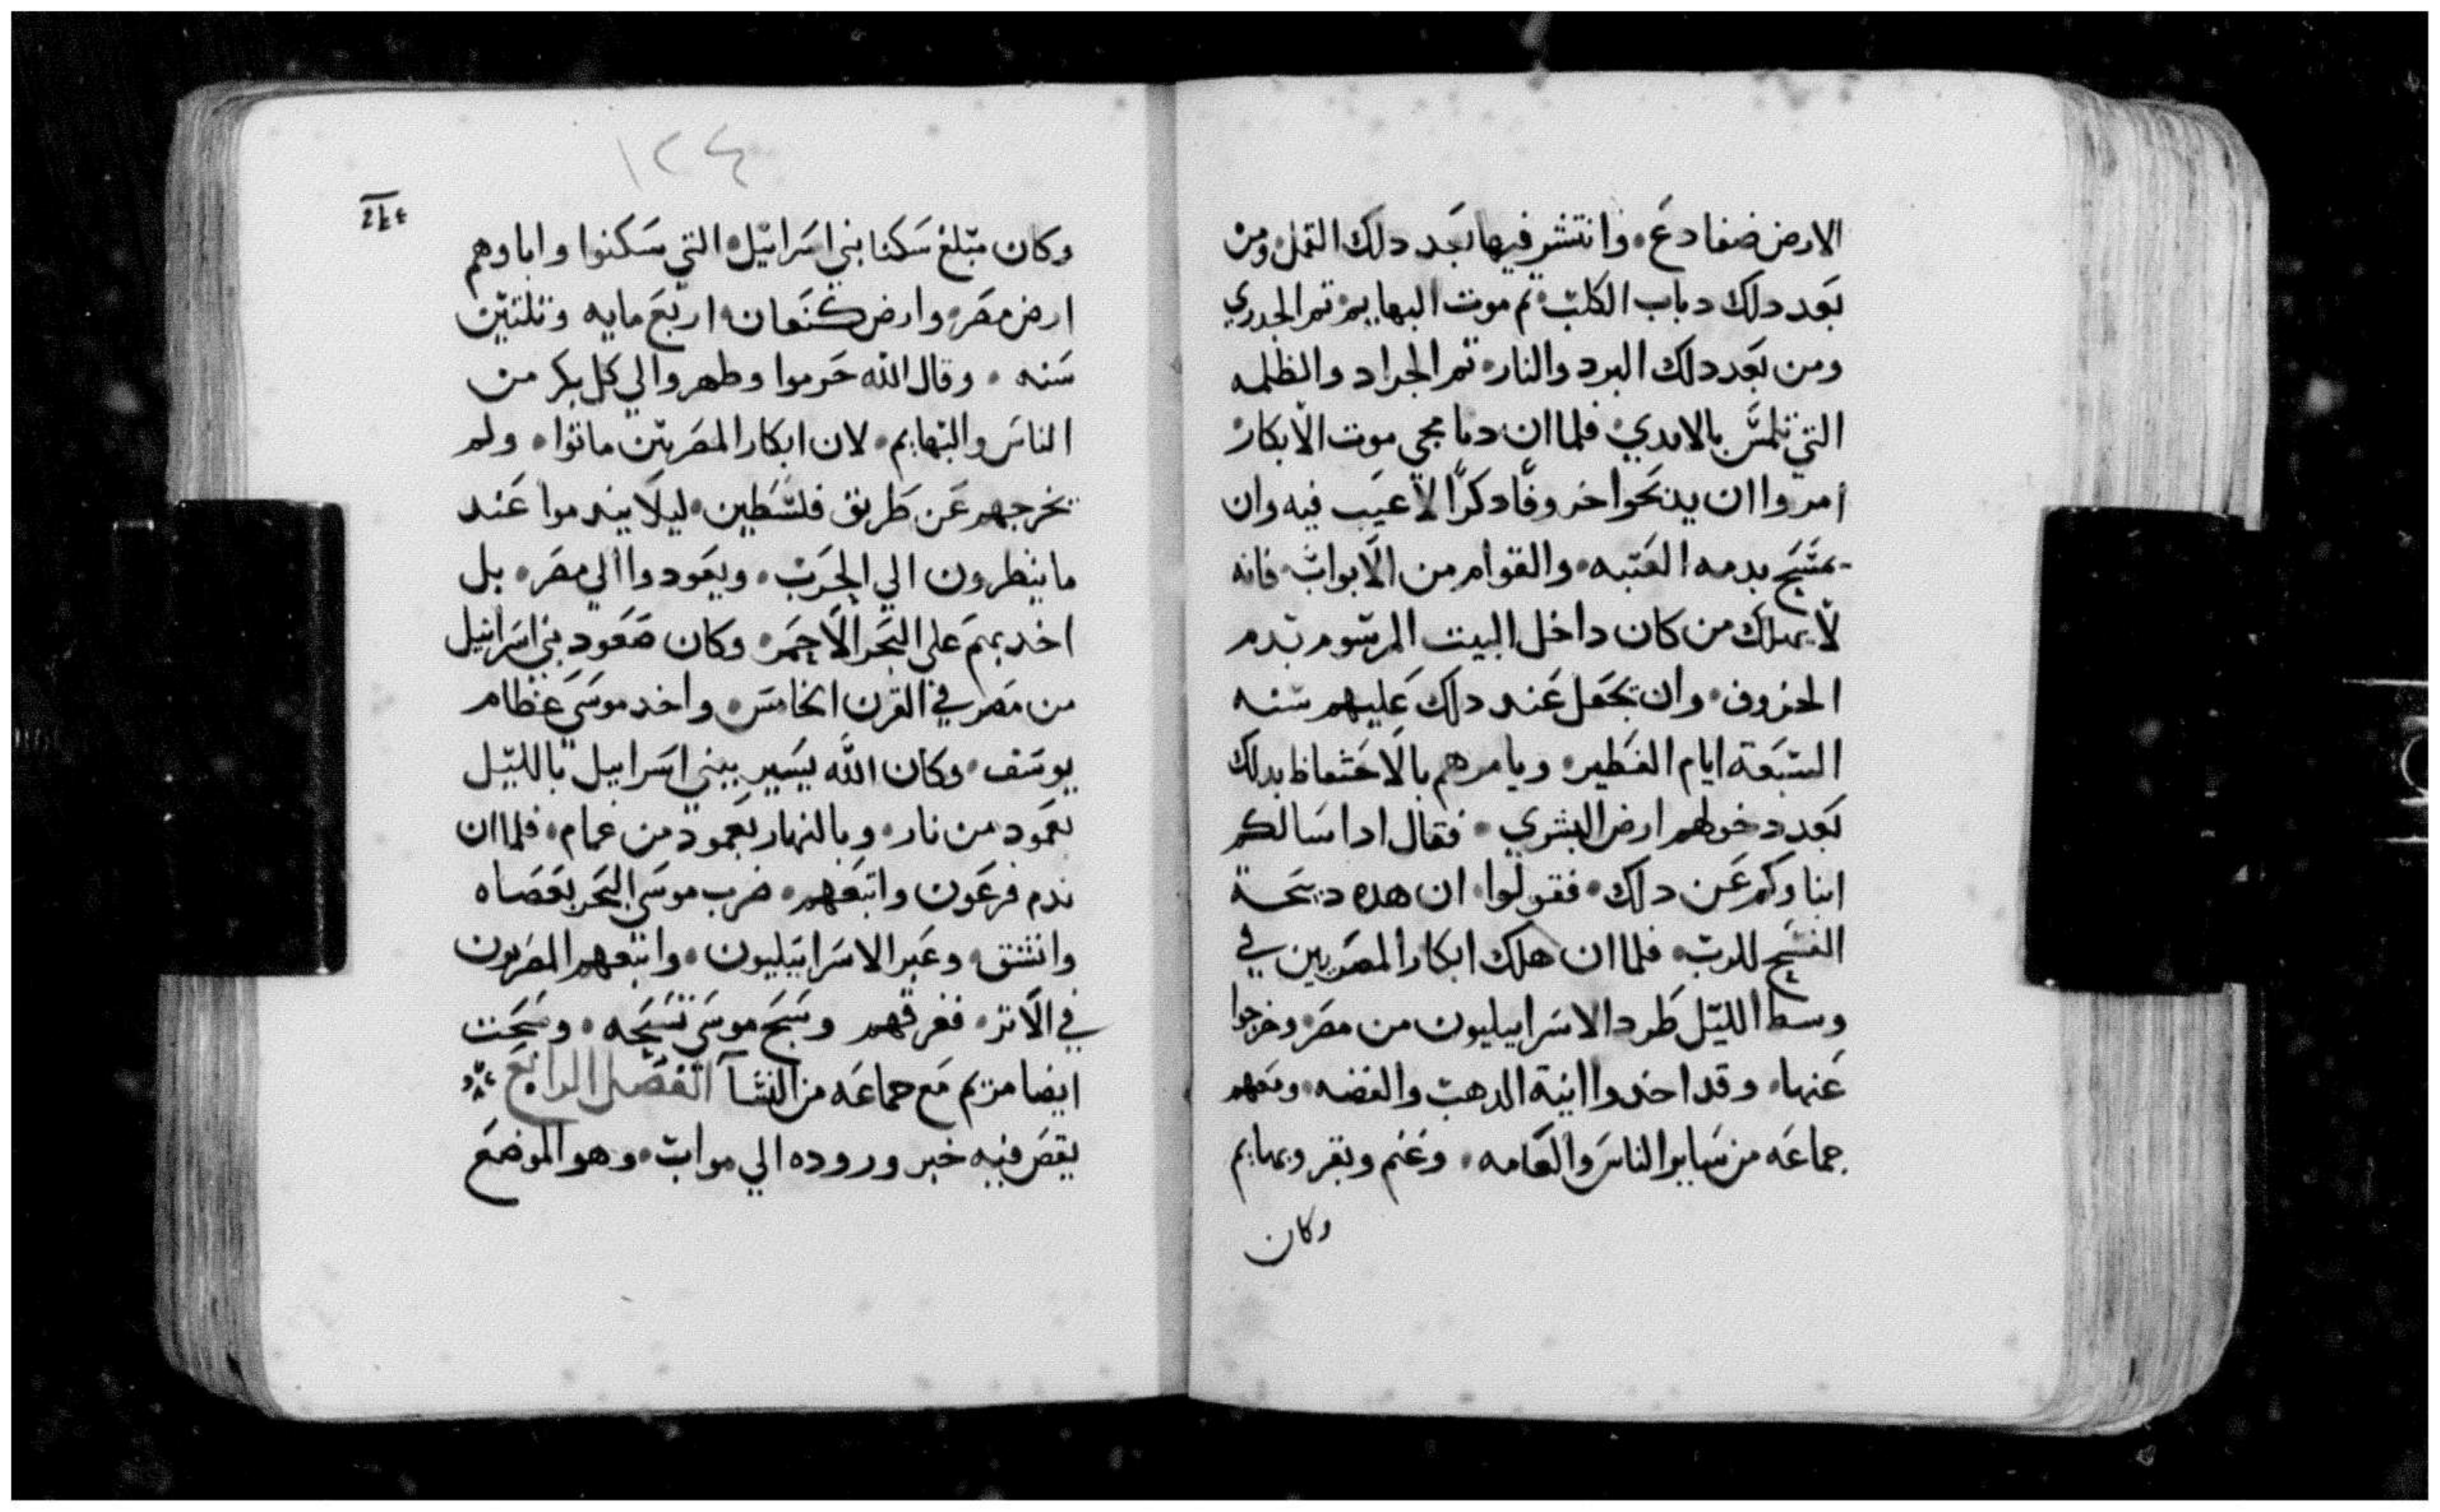 الارض ضفادع • وانتشر فيها بعد دلك القمل ومن
بعد دلك دباب الكلب • تم موت البهايم • تم الجدري
ومن بعد دلك البرد والنار • تم الجراد والظلمه
التي تلمس بالايدي • فلما ان دنا مجي موت الابكار
امروا ان يدبحوا خروفا دكرًا لا عيب فيه وان
يمسح بدمه العتبه • والقوام من الابواب • فانه
لا يهلك من كان داخل البيت المرسوم بدم
الخروف • وان يجعل عند دلك عليهم سنه
السبعة ايام الفطير • ويامرهم بالاحتفاظ بدلك
بعد دخولهم ارض البشري • فقال ادا سالكم
ابناوكم عن دلك • فقولوا • ان هده دبيحة
الفسح للرب • فلما ان هلك ابكار المصريين في
وسط الليل طرد الاسراييليون من مصر • وخرجوا
عنها • وقد اخدوا انية الدهب والفضه • ومعهم
جماعه من ساير الناس والعامه • وغنم وبقر وبهايم
وكان
١٢٤
وكان مبلغ سكنا بني اسراييل • التي سكنوا واباوهم
ارض مصر • وارض كنعان • اربع مايه وتلتين
سنه • وقال الله حرموا وطهروا لي كل بكر من
الناس والبهايم • لان ابكار المصريين ماتوا • ولم
يخرجهم عن طريق فلسطين • ليلا يندموا عند
ما ينظرون الي الحرب • ويعودوا الي مصر • بل
اخد بهم علي البحر الاحمر • وكان صعود بني اسراييل
من مصر في القرن الخامس • واخد موسي عظام
يوسف • وكان الله يسير ببني اسراييل بالليل
بعمود من نار • وبالنهار بعمود من غمام • فلما ان
ندم فرعون واتبعهم • ضرب موسي البحر بعصاه
وانشق • وعبر الاسراييليون • واتبعهم المصريون
في الاتر • فغرقهم وسبح موسي تسبحه • وسبحت
ايضا مريم مع جماعه من النسآ الفصل الرابع
يقص فيه خبر وروده الي مواب • وهو الموضع